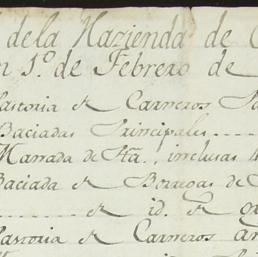 de la Hazienda de
1º de Febrero de
Pastoria de Carneros
Baciadas Principales
Manada de Hta., inclusas
Baciada de Borregas de
de id. de
Pastoria de Carneros